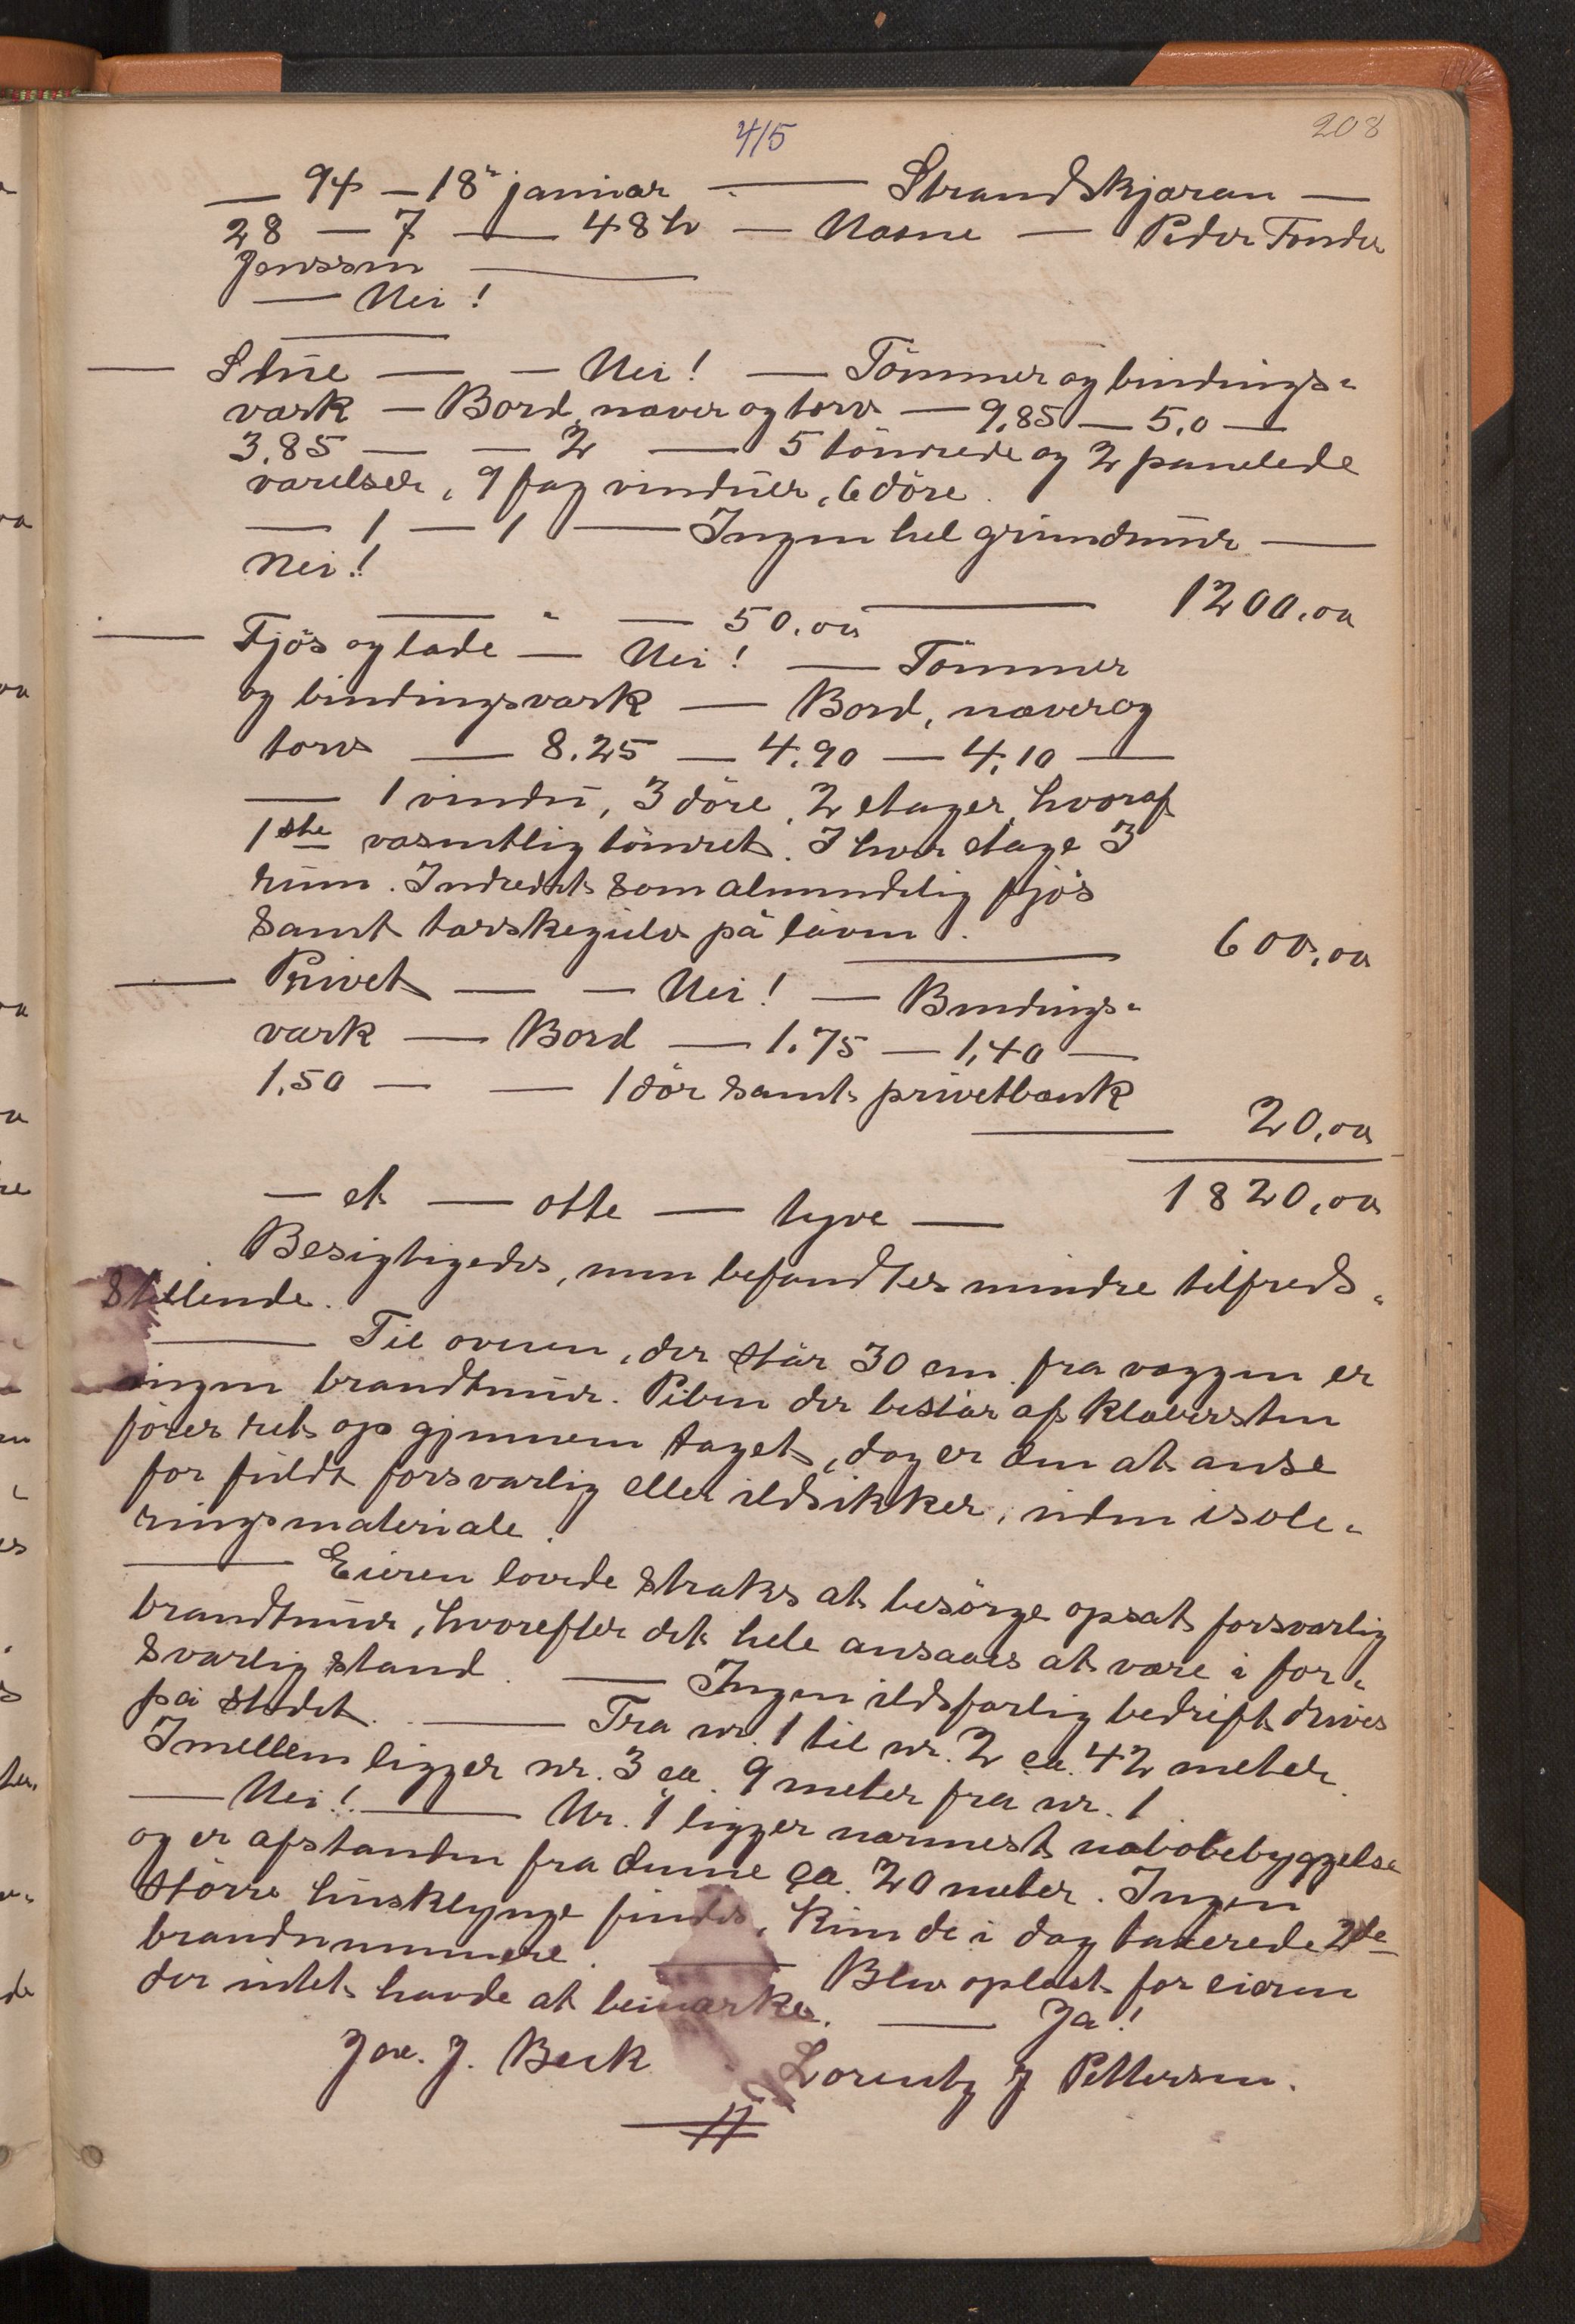 208
4/15
— 94 — 18de januar — Strandskjæran —
28 — 7 — 48 h — Næsne — Peder Tonder
Jenssen —
— Nei!
— Stue — — Nei! — Tömmer og bindings-
værk — Bord, næver og torv — 9,85 — 5,0 —
3,85 — — 2 — 5 tömrede og 2 panelede
værelser, 9 fag vinduer, 6 döre.
— 1 — 1 — Ingen hel grundmur —
Nei!
— " — 50,00 — 1200,00
— Fjös og lade — Nei! — Tömmer
og bindingsværk — Bord, næver og
torv — 8,25 — 4,90 — 4,10 —
— 1 vindu, 3 döre, 2 etager, hvoraf
1ste væsentlig tömret. I hver etage 3
rum. Indredet som almindelig fjös
samt tærskegulv på låven. — 600,00
— Privet — — Nei! — Bindings-
værk — Bord — 1,75 — 1,40 —
1,50 — — 1 dör samt privetbænk
— 20,00
— et — otte — tyve — 1820,00
Besigtigedes, men befandtes mindre tilfreds-
stillende.
— Til ovnen, der står 30 cm. fra væggen er
ingen brandmur. Piben der består af klebersten
förer ret op gjennem taget, dog er den at anse
for fuldt forsvarlig eller ildsikker, uden isole-
ringsmateriale.
— Eieren lovede straks at besörge opsat forsvarlig
brandmur, hvorefter det hele ansaaes at være i for-
svarlig stand. — Ingen ildsfarlig bedrift drives
på stedet. — Fra nr. 1 til nr. 2 ca. 42 meter.
Imellem ligger nr. 3 ca. 9 meter fra nr. 1
— Nei! — Nr. 1 ligger nærmest nabobebyggelse
og er afstanden fra denne ca. 20 meter. Ingen
större husklynge findes, kun de i dag taxerede 2de
brandnummere. — Blev oplæst for eieren
der intet havde at bemærke. — Ja!
Joh. J. Beck Lorentz J Pettersen.